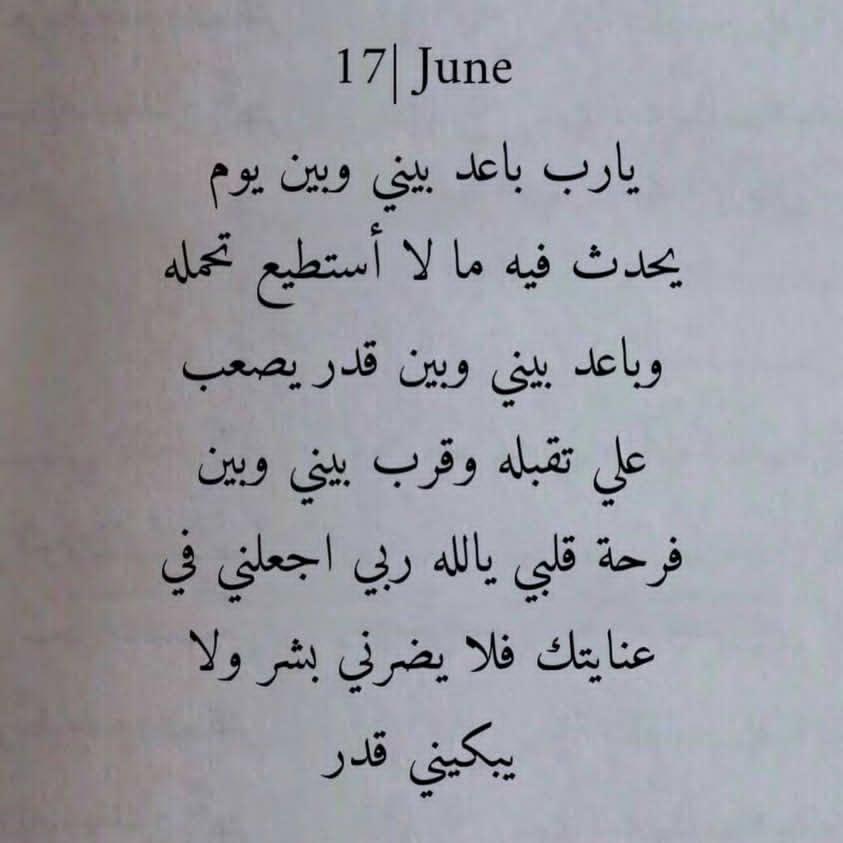 17| June
يارب باعد بيني وبين يوم
يحدث فيه ما لا أستطيع تحمله
وباعد بيني وبين قدر يصعب
علي تقبله وقرب بيني وبين
فرحة قلبي يالله ربي اجعلني في
عنايتك فلا يضرني بشر ولا
يبكيني قدر